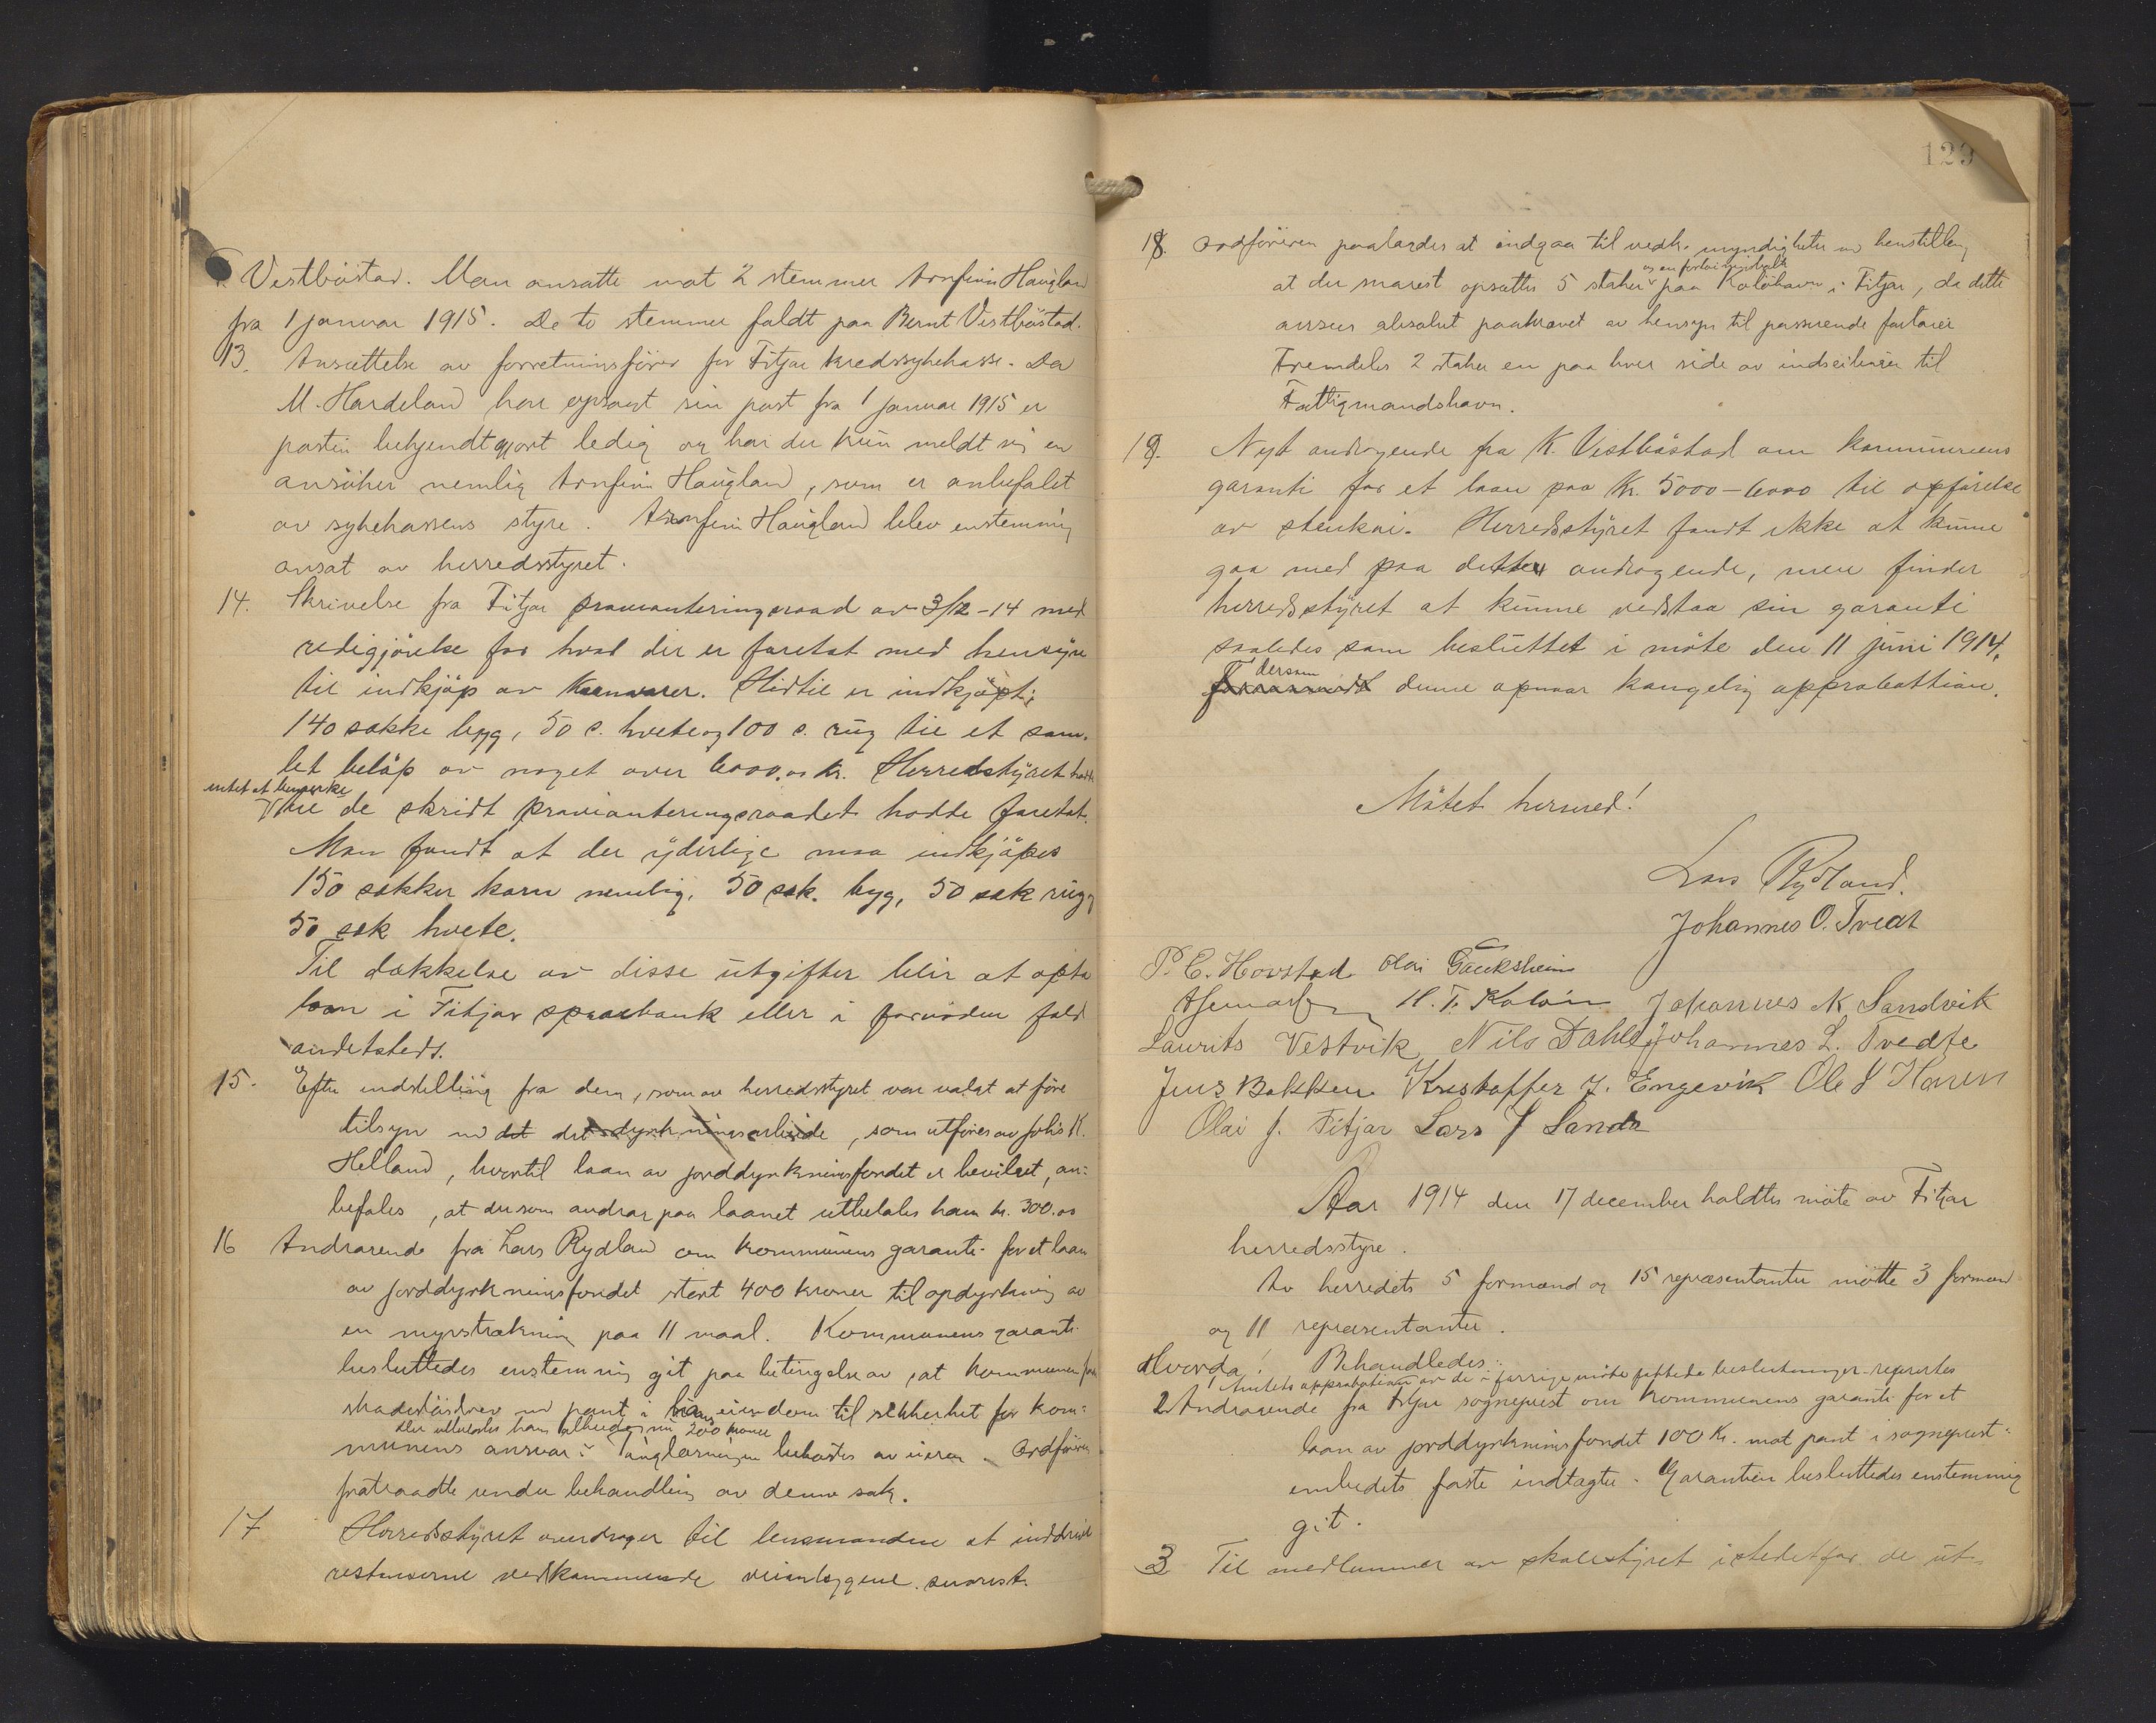 Vestböstad. Man ansatte mot 2 stemmer Arnfinn Haugland
fra 1 januar 1915. De to stemmer faldt paa Bernt Vestböstad.
13. Ansættelse av forretninsförer for Fitjar kredssykekasse. Da
M. Hardeland har opsagt sin post fra 1 januar 1915 er
posten bekjendtgjort ledig og har der kun meldt sig en
ansöker nemlig Arnfinn Haugland, som er anbefalet
av sykekassens styre. Arnfinn Haugland blev enstemmig
ansat av herredsstyret.
14. Skrivelse fra Fitjar provianteringsraad av 3/12-14 med
redigjörelse for hvad der er foretat med hensyn
til indkjöp av kornvarer. Hidtil er indkjöpt:
140 sække byg, 50 s. hvete og 100 s. rug til et sam-
let belöp av noget over 6000,00 kr. Herredstyret hadde
intet at bemerke
til de skridt provianteringsraadet hadde foretat.
Man fandt at der yderlige maa indkjöpes
150 sækker korn nemlig, 50 sek. byg, 50 sek rug og
50 sek hvete.
Til dækkelse av disse utgifter blir at opta
laan i Fitjar sparebank eller i fornöden fald
andetsteds.
15. Efter indstilling fra dem, som av herredsstyret var valgt at före
tilsyn med det det dyrkningsarbeide, som utföres av Johs K.
Helland, hvortil laan av jorddyrkninsfondet er bevilget, an-
befales, at der som andrar paa laanet utbetales ham kr. 300.00
16 Andragende fra Lars Rydland om kommunens garanti for et laan
av jorddyrkninsfondet stort 400 kroner til opdyrkning av
en myrstrækning paa 11 maal. Kommunens garanti
besluttedes enstemmig git paa betingelse av, at kommunen faar
skadeslösbrev med pant i hans eiendom til sikkerhet for kom-
Der utbetales ham allerede nu 200 kroner
munens ansvar. Tinglæsningen bekostes av eieren. Ordföreren
fratraadte under behandling av denne sak.
17 Herredsstyret overdrager til lensmanden at inddrive
restanserne vedkommende veianlæggene snarest.
129
18. Ordföreren paalægdes at indgaa til vedk. myndigheter med henstilling
og en fortöiningsbolt
at der snarest opsættes 5 staker paa Kalöhavn i Fitjar, da dette
ansees absolut paakrævet av hensyn til passerende fartöier
Fremdeles 2 staker en paa hver side av indseilingen til
Fattigmandshavn.
19. Nyt andragende fra K. Vestböstad om kommunens
garanti for et laan paa Kr. 5000-6000 til opförelse
av stenkai. Herredsstyret fandt ikke at kunne
gaa med paa dette andragende, men finder
herredsstyret at kunne vedstaa sin garanti
saaledes som besluttet i möte den 11 juni 1914,
dersom
denne opnaar kongelig approbattion.
Mötet hermed!
Lars Rydland.
Johannes O. Tveat
P. C. Hovstad Olai Gauksheim
H. T. Kalöin Johannes N Sandvik
Laurits Vestvik Nils Dahle Johannes L. Tvedte
Jens Bakken Kristoffer J. Engevik Ole J Haren
Olai J. Fitjar Lars J Sande
Aar 1914 den 17 december holdtes möte av Fitjar
herredsstyre.
Av herredets 5 formænd og 15 repræsentanter mötte 3 formænd
og 11 repræsentanter.
Hvorda! Behandledes:
Amtets approbation av de i forrige möte fattede beslutninger refertes
2. Andragende fra Fitjar sogneprest om kommunens garanti for et
laan av jorddyrkninsfondet 100 Kr. mot pant i sogneprest-
embedets faste indtægter. Garantien besluttedes enstemmig
git.
3 Til medlemmer av skolestyret istedetfor de ut-